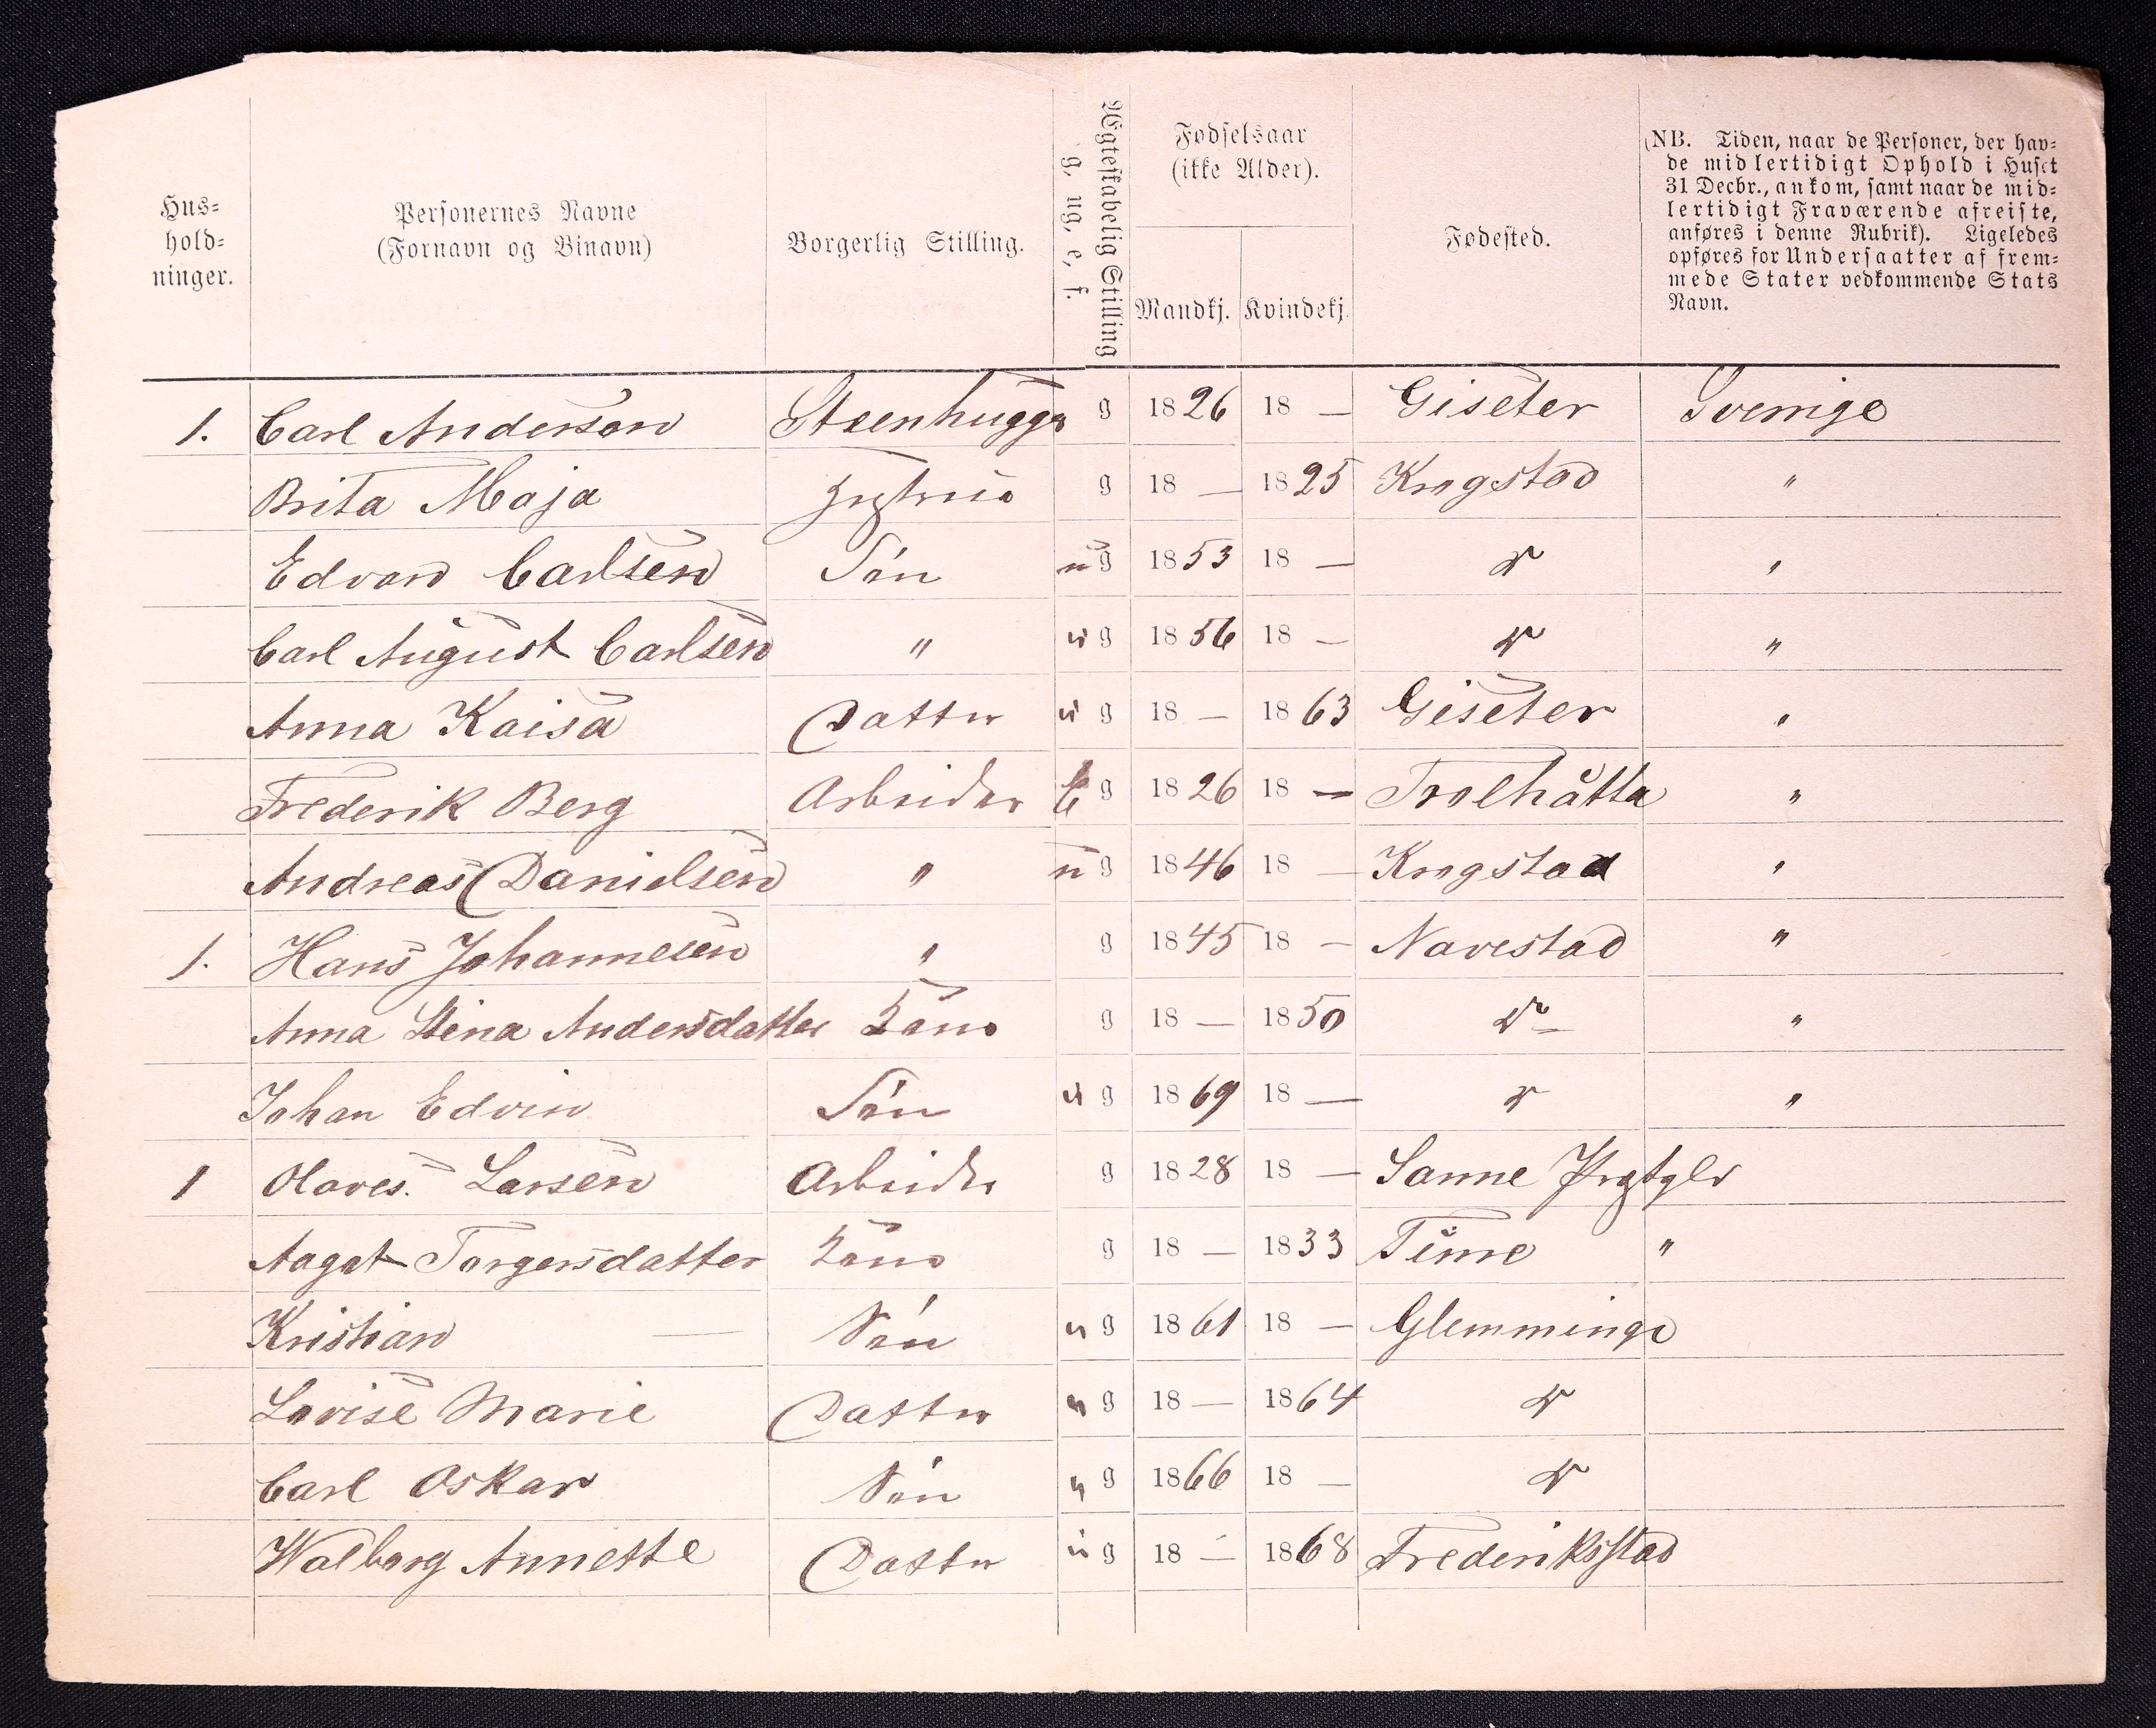 Hus-
hold-
ninger.
Personernes Navne
(Fornavn og Binavn)
Borgerlig Stilling.
Ægteskabelig Stilling
g, ug, e, f.
Fødselsaar
(ikke Alder).
Mandkj. Kvindekj.
Fødested.
(NB. Tiden, naar de Personer, der hav-
de midlertidigt Ophold i Huset
31 Decbr., ankom, samt naar de mid-
lertidigt Fraværende afreiste,
anføres i denne Rubrik). Ligeledes
opføres for Undersaatter af frem-
mede Stater vedkommende Stats
Navn.
1. Carl Anderson Steenhugger g 1826 18 — Giseter Sverrige
Brita Maja g 18 — 1825 Krogstad "
Edvard Carlsen Søn ug 1853 18 — do "
Carl August Carlsen " ug 1856 18 — do "
Anna Kaisa Datter ug 18 — 1863 Giseter "
Frederik Berg Arbeider E g 1826 18 — Trolhåtta "
Andreas Danielsen " ug 1846 18 — Krogstad "
1. Hans Johannesen " g 1845 18 — Navestad "
Anna Stina Andersdatter Kone g 18 — 1850 do "
Johan Edvin Søn ug 1869 18 — do "
1 Olaves. Larsen Arbeider g 1828 18 — Sanne Prgtgld
Aagot Torgersdatter Kone g 18 — 1833 Time "
Kristian — Søn ug 1861 18 — Glemminge
Lovise Marie Datter ug 18 — 1864 do
Carl Oskar Søn ug 1866 18 — do
Walborg Annette Datter ug 18 — 1868 Frederiksstad